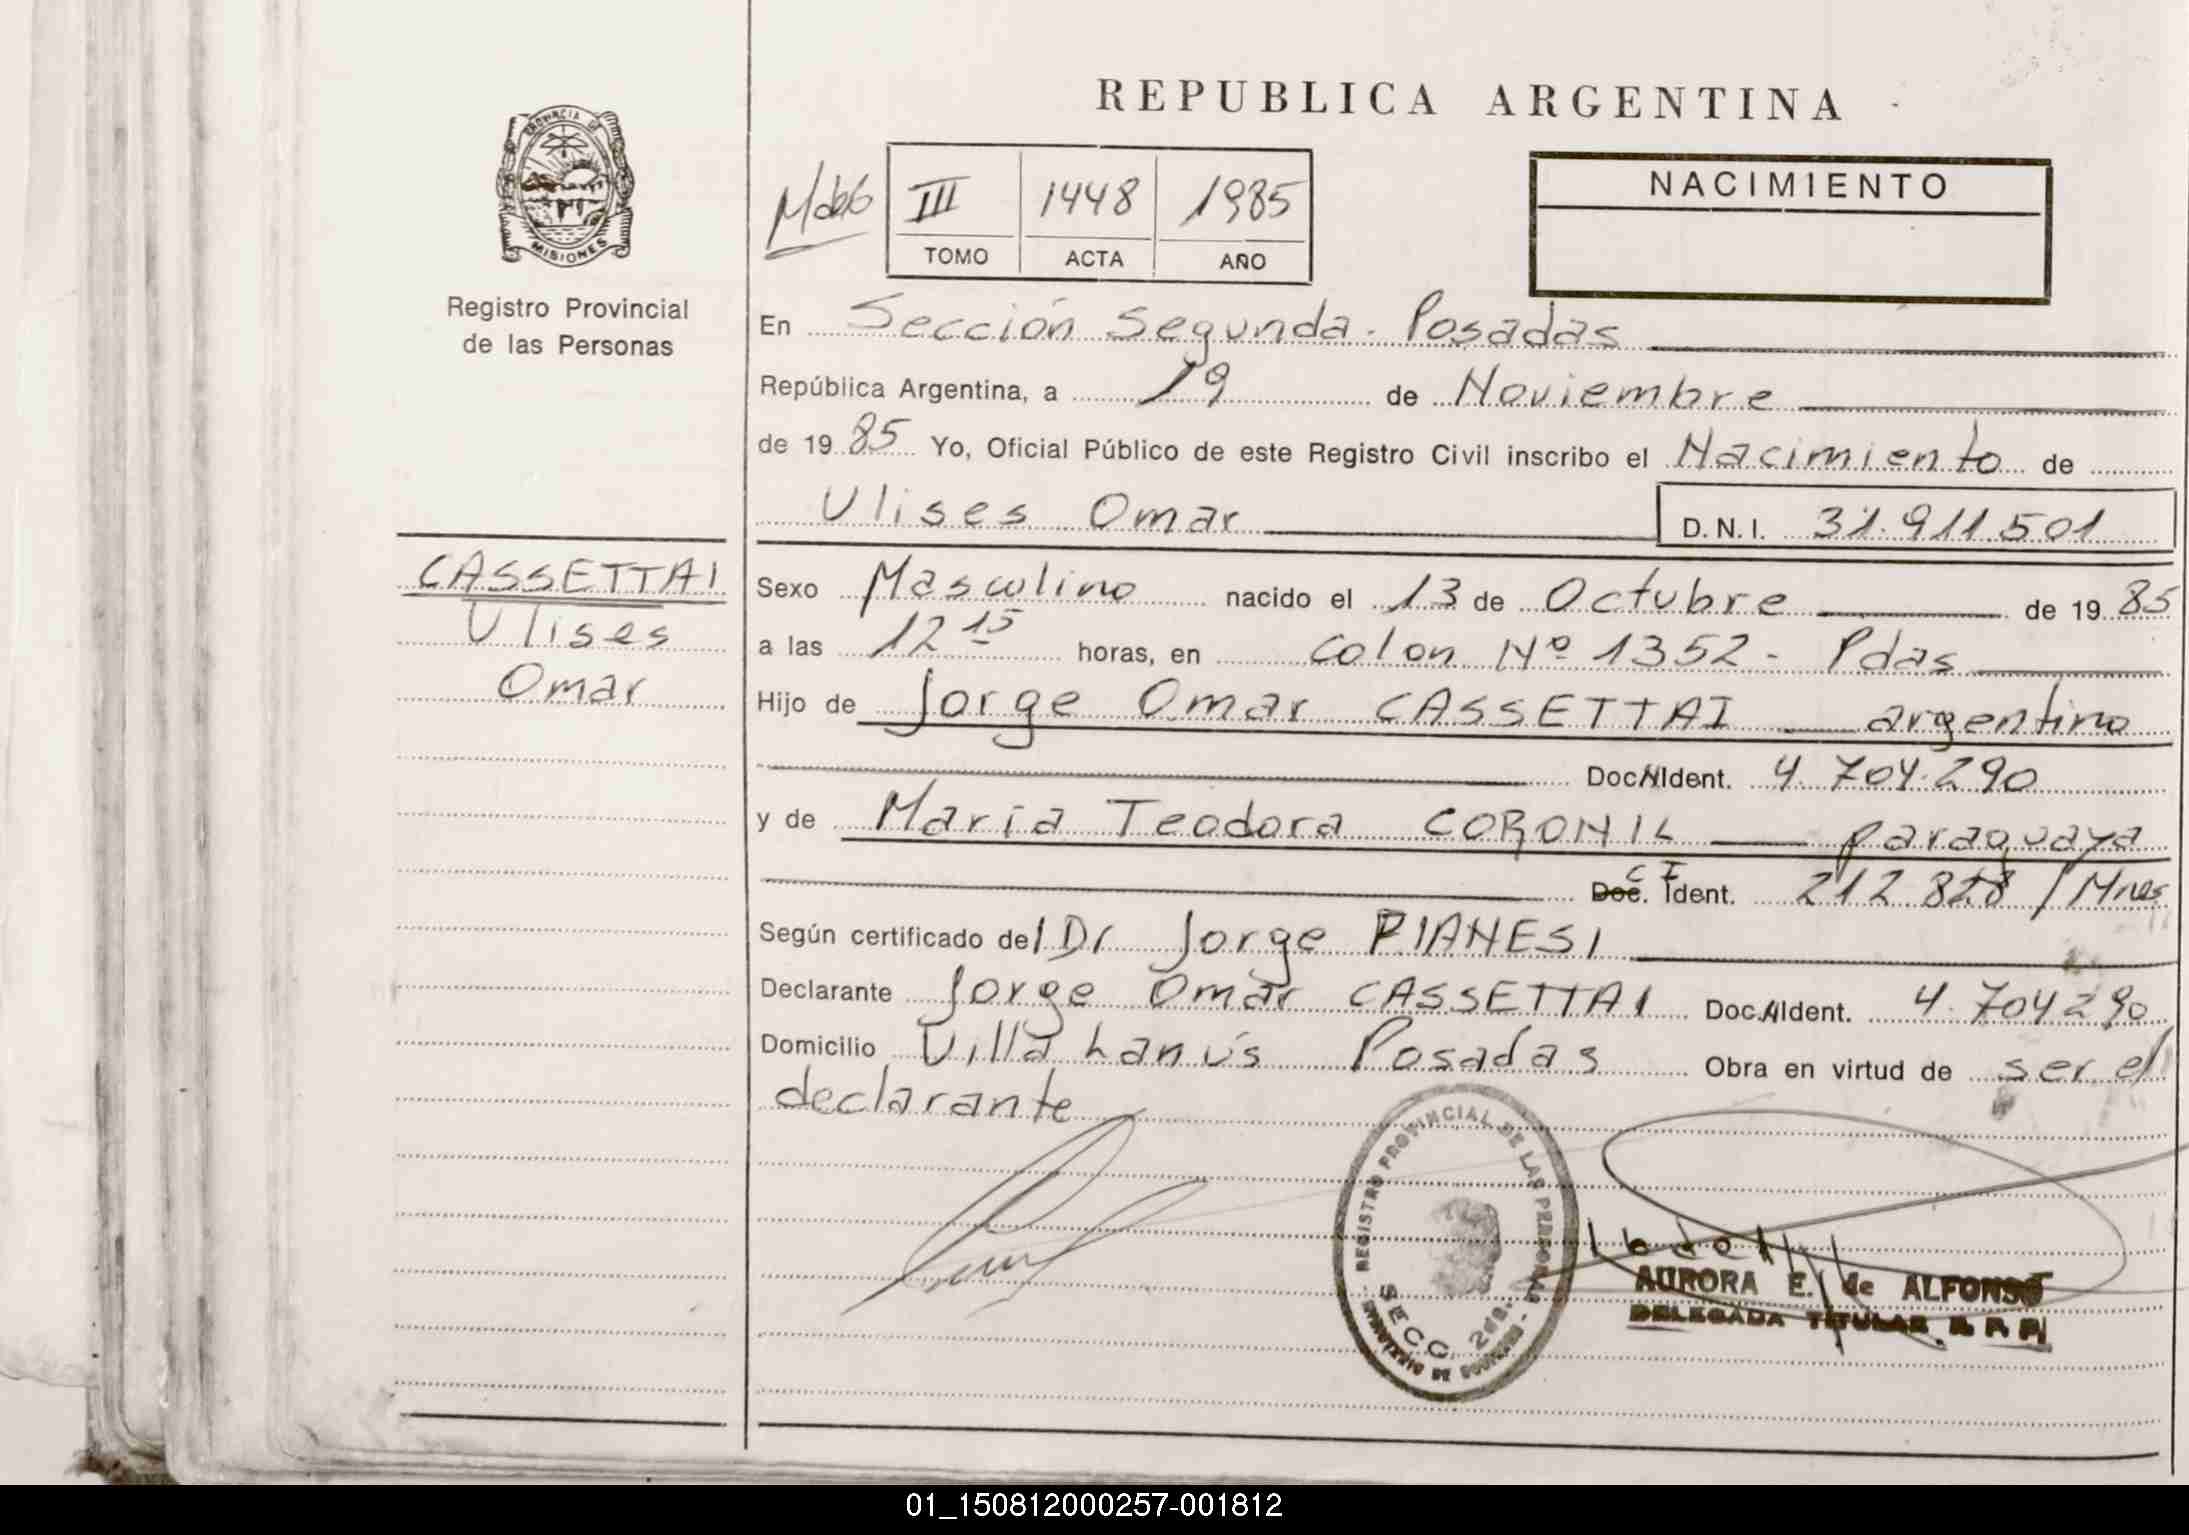 REPUBLICA ARGENTINA
PROVINCIA DE
MISIONES
Registro Provincial
de las Personas
III 1448 1985
TOMO ACTA AÑO
NACIMIENTO
En Sección Segunda - Posadas
República Argentina, a 19 de Noviembre
de 19 85 Yo, Oficial Público de este Registro Civil inscribo el Nacimiento de
Ulises Omar D.N.I. 31.911.501
CASSETTAI
Ulises
Omar
Sexo Masculino nacido el 13 de Octubre de 19 85
a las 12 15 horas, en Colon Nº 1352 - Pdas
Hijo de Jorge Omar CASSETTAI argentino
Doc. Ident. 4.704.290
y de María Teodora CORONIL paraguaya
C I
Doc. Ident. 212.828 / Mnes
Según certificado del Dr Jorge PIANESI
Declarante Jorge Omar CASSETTAI Doc. Ident. 4.704290
Domicilio Villa Lanús Posadas Obra en virtud de ser el
declarante
REGISTRO PROVINCIAL DE LAS PERSONAS
SECC. 2da.
MINISTERIO DE GOBIERNO
AURORA E. de ALFONSO
DELEGADA TITULAR R. P. P.
01_150812000257-001812